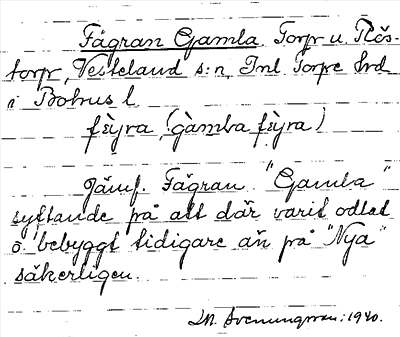 Fägran Gamla. Torp u. Rös-
torp, Vesteland s:n, Inl. Torpe hrd
i Bohus l.
fèyra (gàmba fèyra)
Jämf. Fägran "Gamla"
syftande på att där varit odlat
o bebyggt tidigare än på "Nya"
säkerligen.
1940.